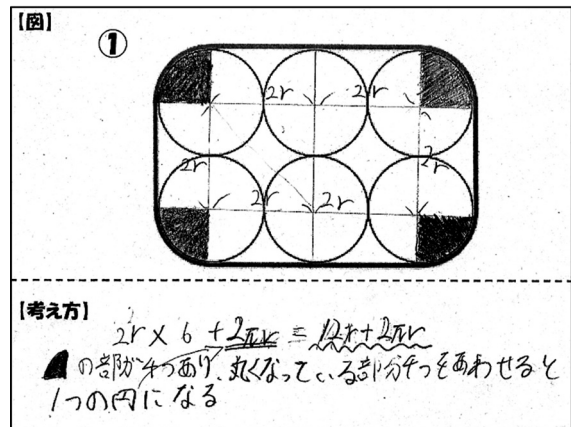 【図】
①
2r 2r
2r 2r
2r 2r
【考え方】
2r × 6 + 2πr = 12r + 2πr
の部が4つあり、丸くなっている部分4つをあわせると
1つの円になる